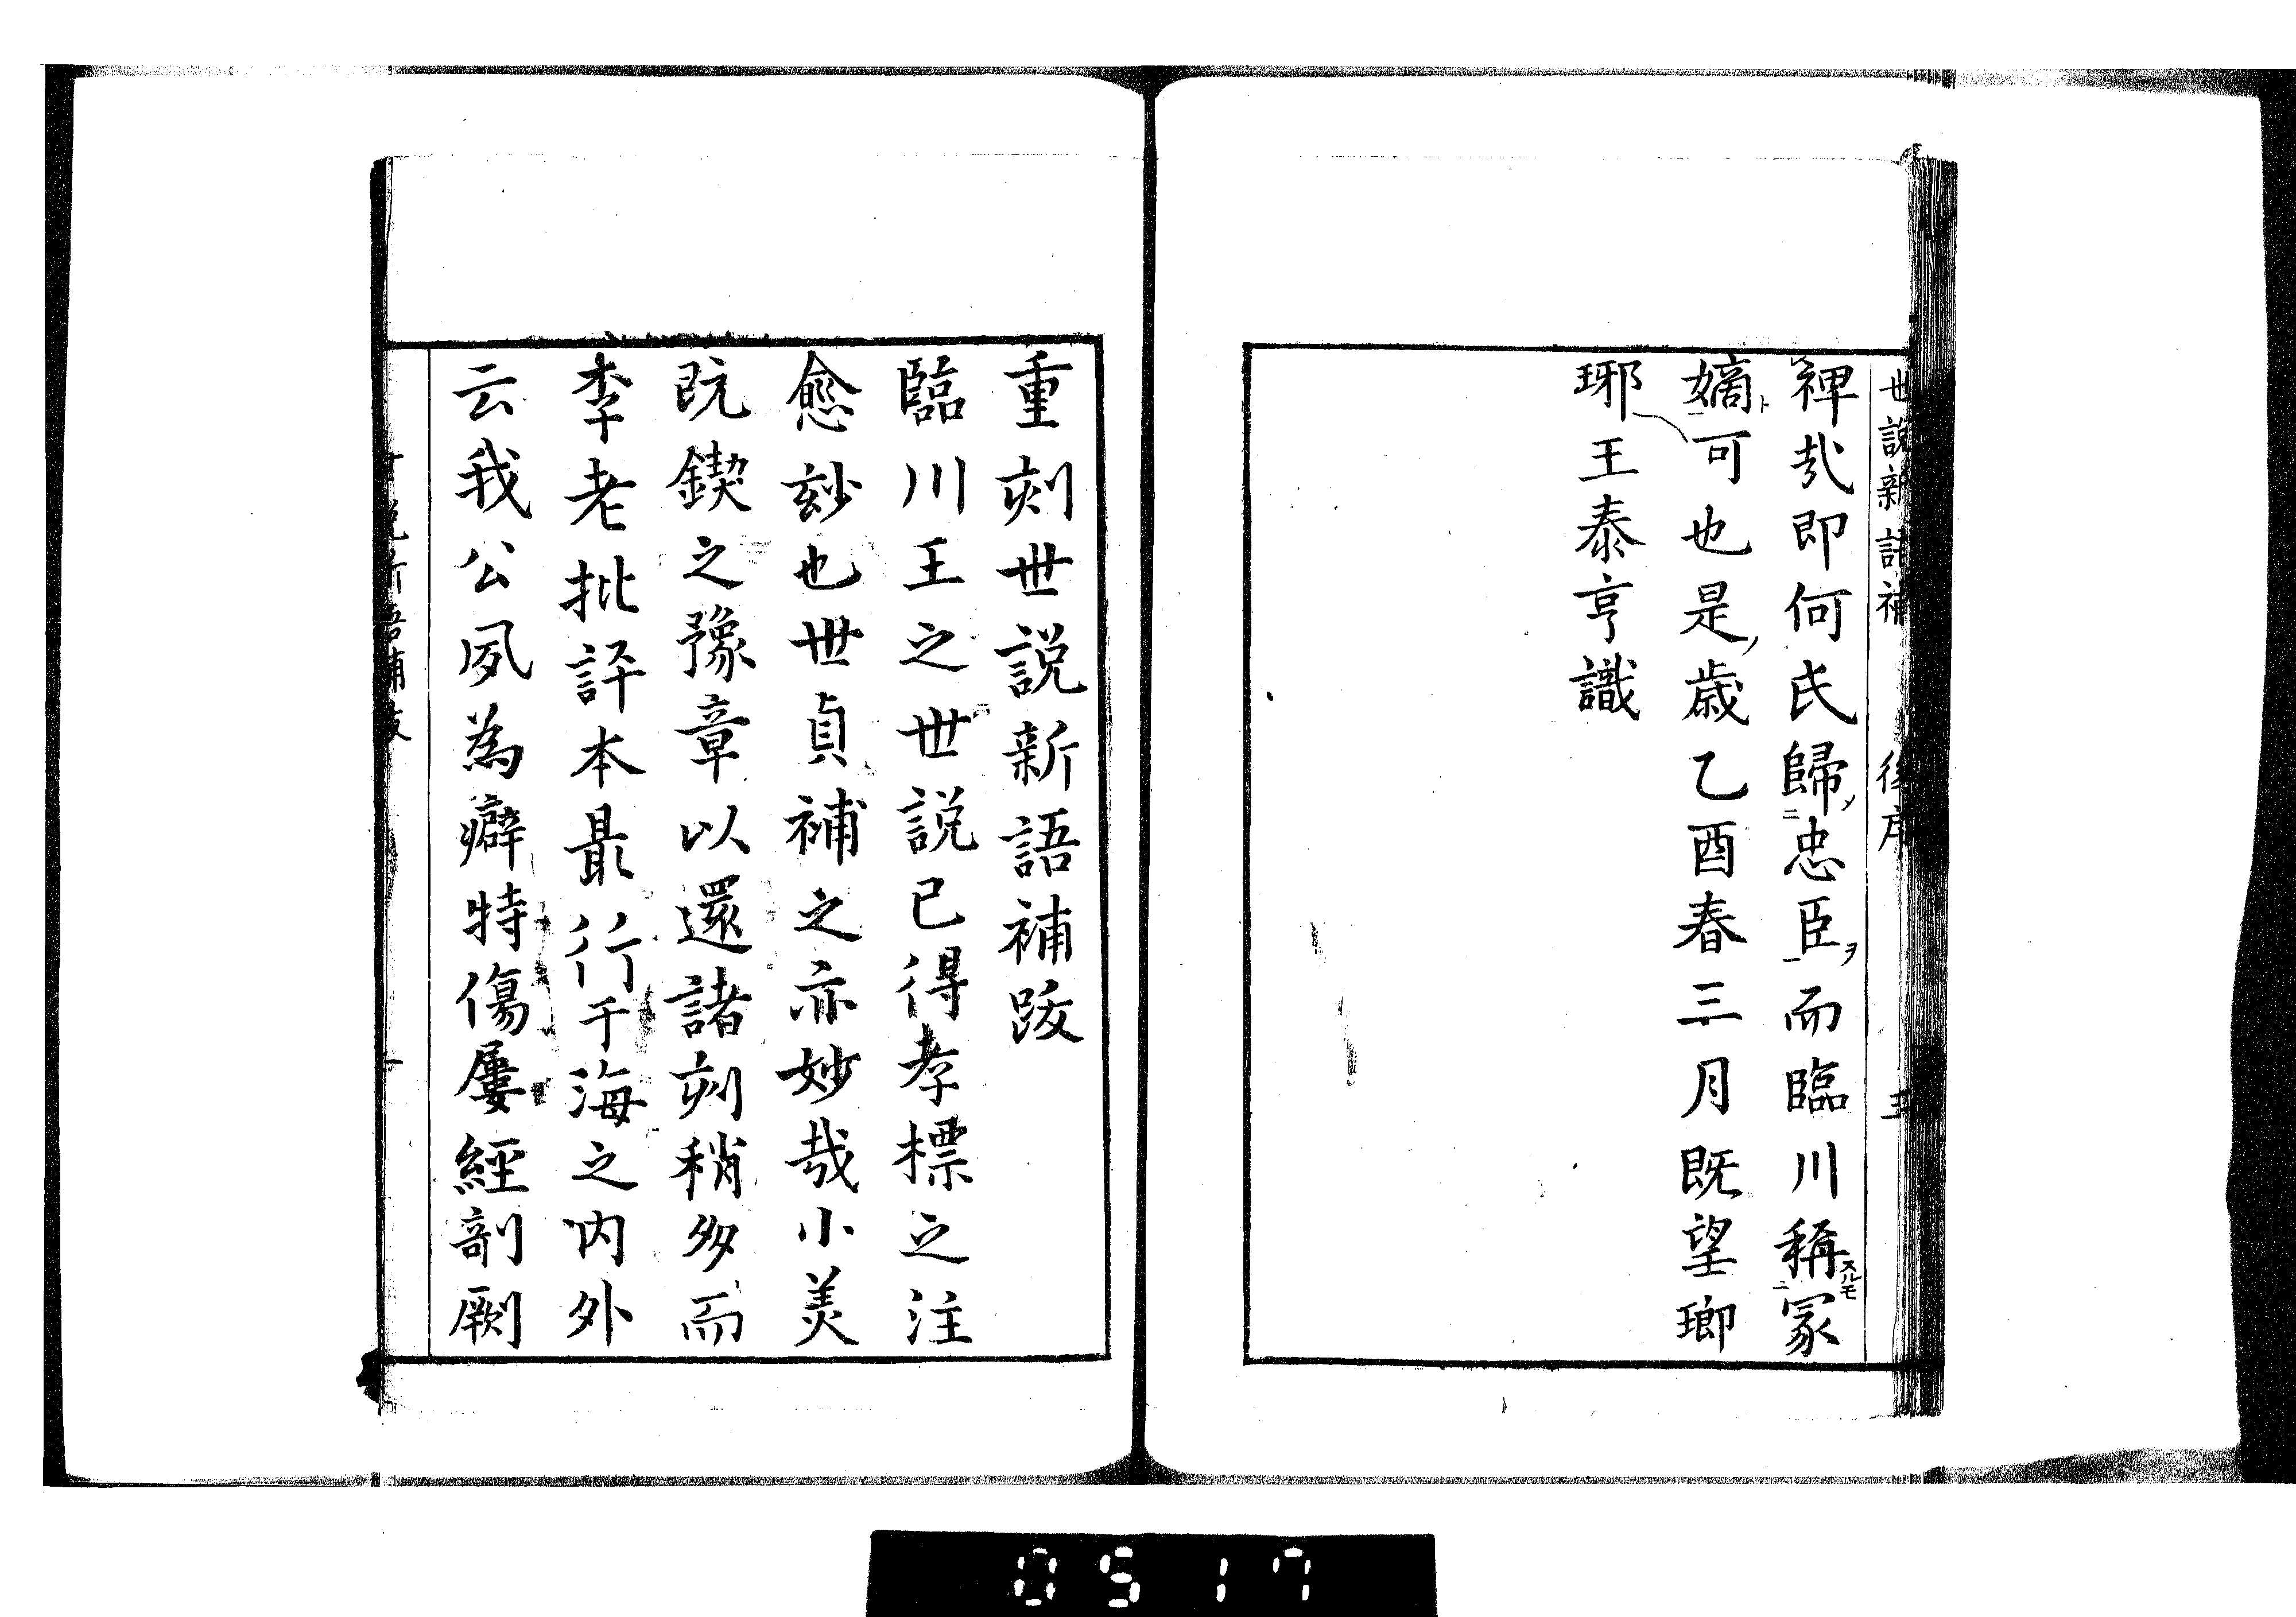 世說新語補 後序 三
裨哉即何氏歸忠臣而臨川稱冢
嫡可也是歲乙酉春三月既望瑯
琊王泰亨識
重刻世説新語補跋
臨川王之世説已得孝標之注
愈玅也世貞補之亦妙哉小美
既鍥之豫章以還諸刻稍多而
李老批評本最行于海之内外
云我公夙為癖特傷屢經剞劂
0517